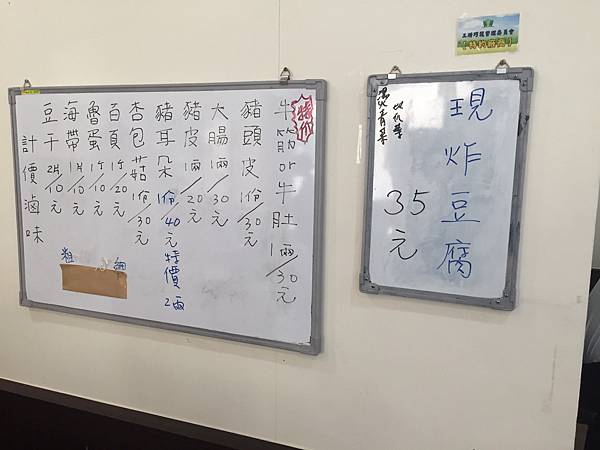 特價
牛筋or牛肚 1兩/30元
豬頭皮 1份/30元
大腸 1兩/30元
豬皮 1兩/20元
豬耳朵 1份/40元 特價2兩
杏包菇 1份/30元
百頁 1个/20元
魯蛋 1个/10元
海帶 1片/10元
豆干 2片/10元
計價滷味
粗
細
現炸豆腐
35元
燙青菜
特約商店